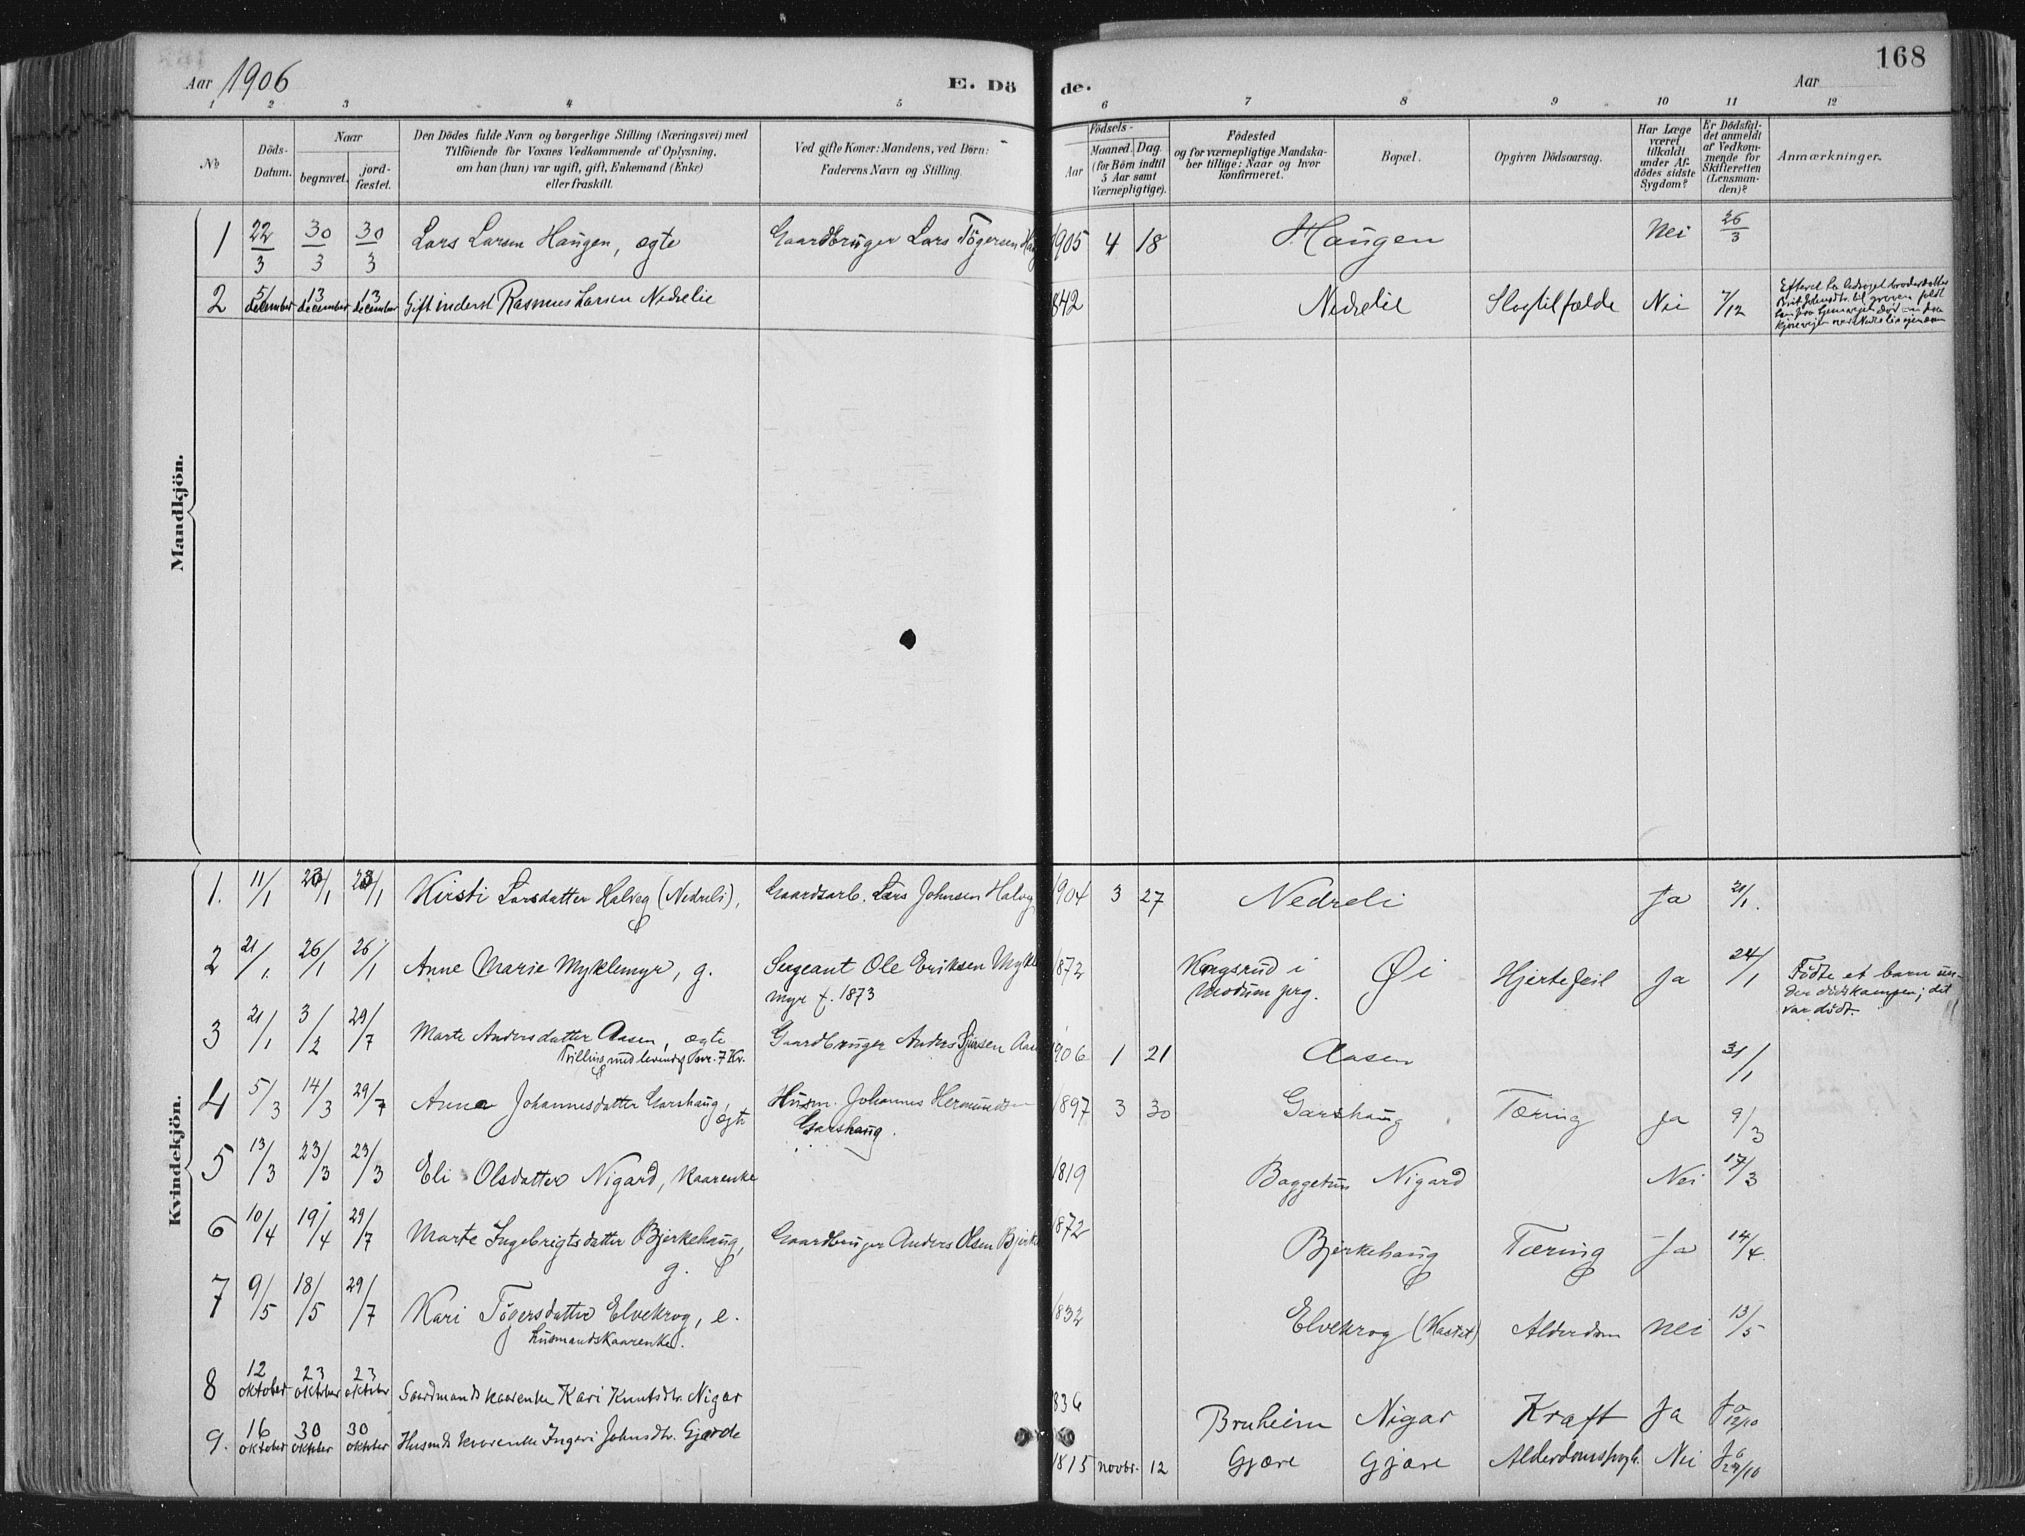 168
Aar 1906 E. Dö de. Aar
1 2 3 4 5 6 7 8 9 10 11 12
No
Döds-Datum.
Naar
begravet.
jord-fæstet.
Den Dödes fulde Navn og borgerlige Stilling (Næringsvei) med
Tilföiende for Voxnes Vedkommende af Oplysning,
om han (hun) var ugift, gift, Enkemand (Enke)
eller fraskilt.
Ved gifte Koner: Mandens, ved Børn:
Faderens Navn og Stilling.
Födsels-
Aar
Maaned. Dag
(for Børn indtil
5 Aar samt
Værnepligtige).
Födested
og for værnepligtige Mandska-
ber tillige: Naar og hvor
Konfirmeret.
Bopæl.
Opgiven Dödsaarsag.
Har Læge
været
tilkaldt
under Af-
dödes sidste
Sygdom?
Er Dödsfal-
det anmeldt
af Vedkom-
mende for
Skifteretten
(Lensman-
den)?
Anmærkninger.
Mandkjön.
1 22/3 30/3 30/3 Lars Larsen Haugen, ægte Gaardbruger Lars Tögersen 1905 4 18 Haugen Nei 26/3
2 5/december 13 december 13 december Gift inderst Rasmus Larsen Nedrelie 842 Nedrelie Slagtilfælde Nei 7/12
Kvindekjön.
1. 11/1 23/1 23/1 Kirsti Larsdatter Halveg (Nedreli), Gaardsarb. Lars Johnsen Halveg 1904 3 27 Nedreli Ja 21/1.
2 21/1 26/1 26/1 Anne Marie Myklemyr, g. Sergeant Ole Eriksen Mykle
myr f. 1873 1872 i
Modum prg. Øi Hjertefeil Ja 24/1 Fødte et barn un-
der dödskampen; det
var dödt.
3 21/1 3/2 29/7 Marte Andersdatter Aasen, ægte
Gaardbruger Anders 1906 1 21 Aasen 31/1
4 5/3 14/3 29/7 Anna Johannesdatter Garshaug,
ægte Husm. Johannes Hermundsen
Garshaug. 1897 3 30 Garshaug Tæring Ja 9/3
5 13/3 23/3 23/3 Eli Olsdatter Nigard, Kaarenke 1819 Baggetun Nigard Nei 17/3
6 10/4 19/4 29/7 Marte Ingebrigtsdatter Bjerkehaug,
g. Gaardbruger Anders Olsen Bjerke 1872 Bjerkehaug Tæring Ja 14/4.
7 9/5 18/5 29/7 Kari Tögersdatter Elvekrog, e.
husmandskaarenke. 1832 Elvekrog Alderdom Nei 13/5
8 12 oktober 23 oktober 23 oktober Gardmands kaarenke Kari Knutsdtr. Nigar 836 Bruheim Nigar Kræft Ja Ja 12/10
9. 16 oktober 30 oktober 30 oktober Husmds kaarenke Ingeri Johnsdtr. Gjærde 1815 novbr. 12 Gjære Gjære Nei Ja